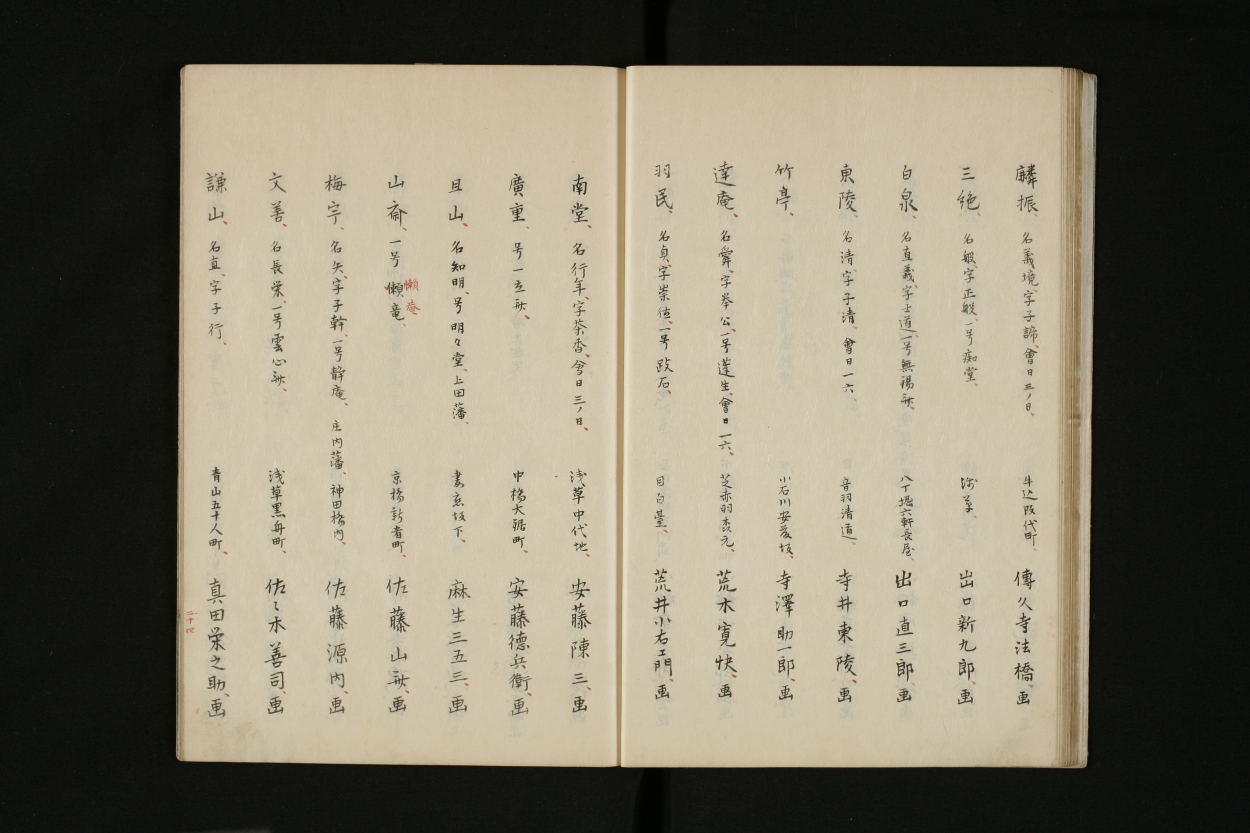 麟振、名義境、字子諦、會日三ノ日、牛込改代町、傳久寺法橋、画
三絶、名般、字正般、一号痴堂、浅草、出口新九郎、画
白泉、名直義、字士道、一号無楊斎、八丁堀六軒長屋、出口直三郎、画
東陵、名清、字子清、會日一六、音羽清道、寺井東陵、画
竹亭、小石川安藤坂、寺澤助一郎、画
達庵、名舜、字挙公、一号蓬生、會日一六、芝赤羽森元、荒木寛快、画
羽民、名貞、字崇位、一号跂石、目白臺、荒井小右エ門、画
南堂、名行年、字茶香、會日三ノ日、浅草中代地、安藤陳三、画
廣重、号一立斎、中橋大鋸町、安藤德兵衛、画
且山、名知明、号明々堂、上田藩、妻恋坂下、麻生三五三、画
山斎、一号懶竜、懶菴、京橋新肴町、佐藤山斎、画
梅宇、名矢、字子幹、一号静庵、庄内藩、神田橋内、佐藤源内、画
文善、名長栄、一号雲心斎、浅草黒舟町、佐々木善司、画
謙山、名直、字子行、青山五十人町、真田栄之助、画
二十四